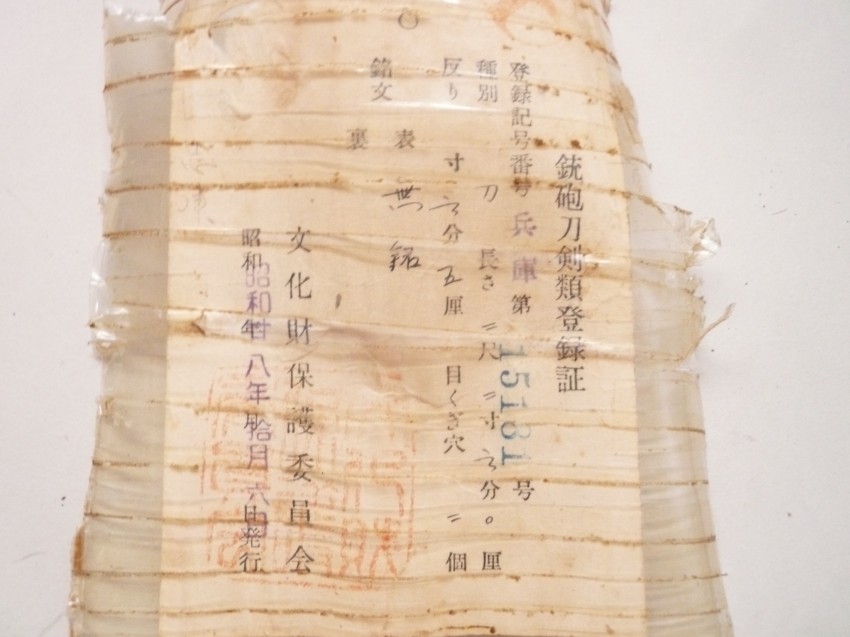 銃砲刀剣類登録証
登録記号番号 兵庫 第 15181 号
種別 刀 長さ 二尺 二寸 三分 〇厘
反り 寸 三分 五厘 目くぎ穴 二 個
銘文 表 無銘
裏
文化財保護委員会
昭和 年 月 日発行
昭和廿八年拾月六日